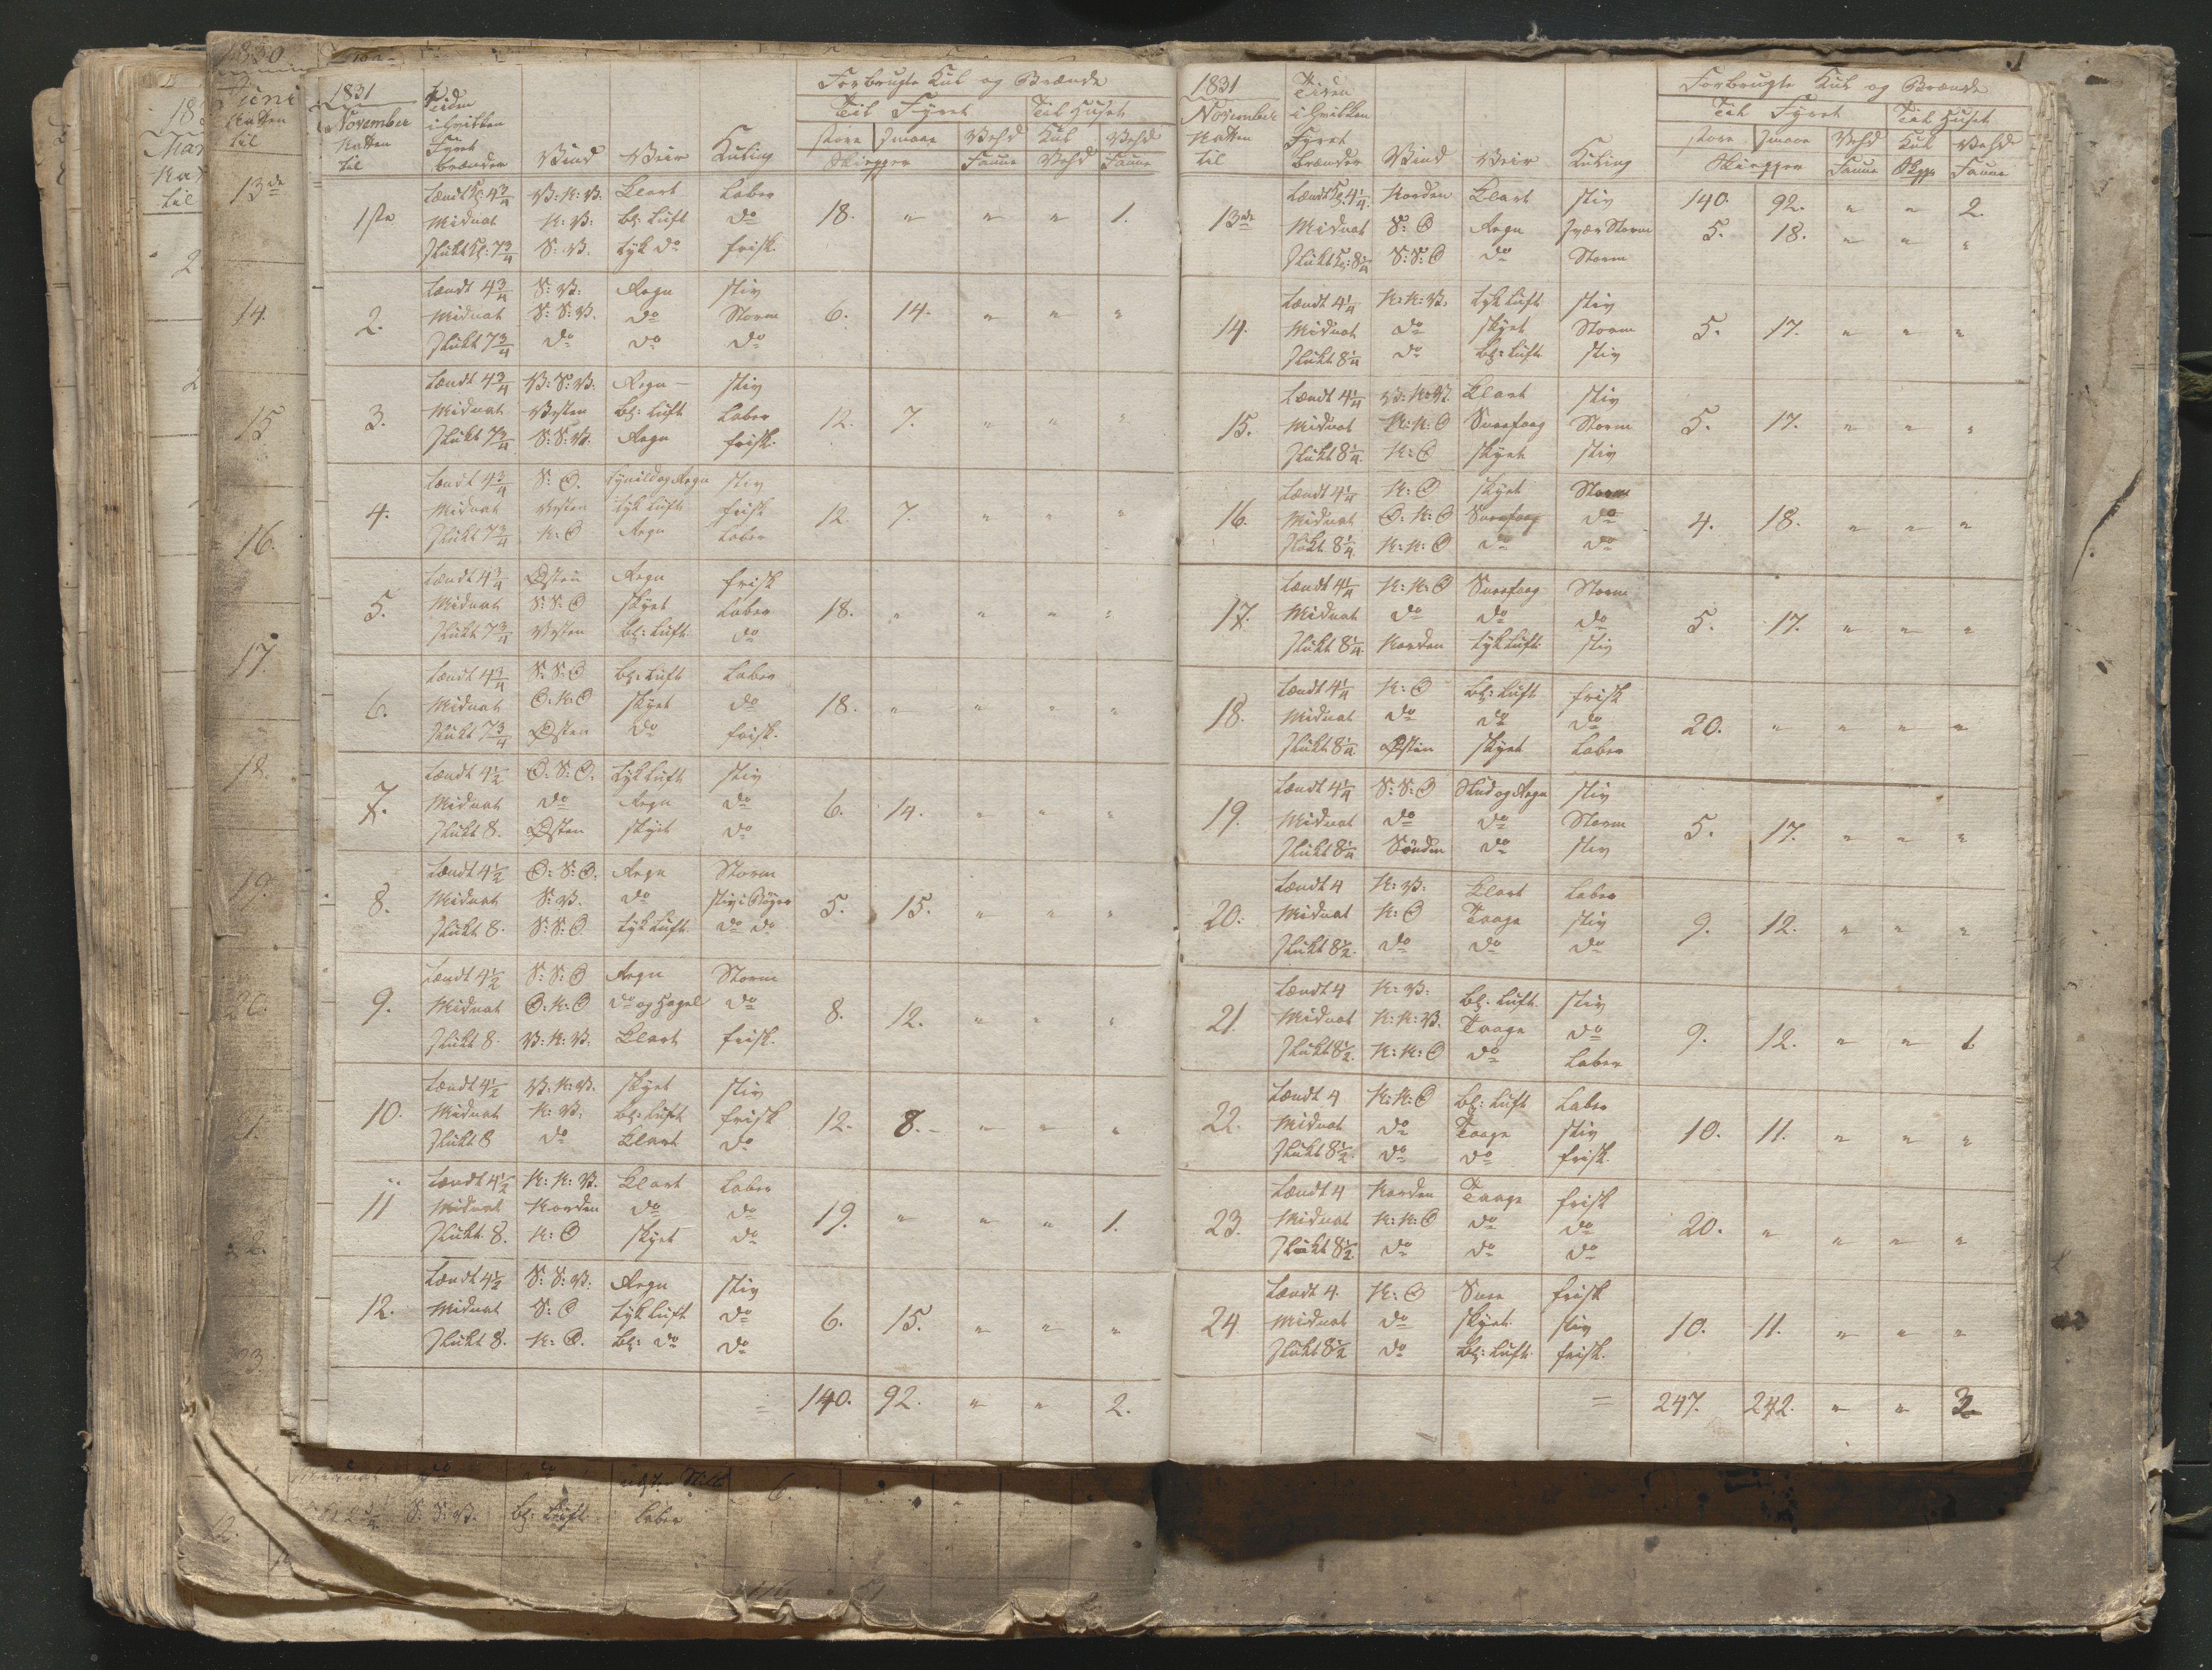 1831
November
Natten
til
Tiden
i hvilken
Fyret
brænder
Vind
Veir
Kuling
Forbrugte Kul og Brænde
Til Fyret
Til Huset
store
smaae
Vehd
Kul
Vehd
Skiepper
Faune
Vehd
Faune
1ste
tændt Kl: 4 3/4 V: N: V. Klart Laber
Midnat N: V: bl: Luft do 18. " " " 1.
slukt Kl: 7 3/4 S: V. tyk do frisk.
tændt 4 3/4 S: V: Regn stiv
2. Midnat S: S: V. do Storm 6. 14. " " "
slukt 7 3/4 do do do
tændt 4 3/4 V: S: V: Regn stiv
3. Midnat Vesten bl: Luft Laber 12. 7. " " "
slukt 7 3/4 S: S: V. Regn frisk.
tændt 4 3/4 S: O. og Regn stiv
4. Midnat Vesten tyk Luft frisk 12. 7. " " "
slukt 7 3/4 N: O Regn Laber
tændt 4 3/4 Østen Regn frisk
5. Midnat S: S: O skyet Laber 18. " " " "
slukt 7 3/4 Vesten bl: Luft do
tændt 4 3/4 S: S: O bl: Luft Laber
6. Midnat O: N: O skyet do 18. " " " "
slukt 7 3/4 Østen do frisk.
tændt 4 1/2 O: S: O. tyk Luft stiv
7. Midnat do Regn do 6. 14. " " "
slukt 8. Østen skyet do
tændt 4 1/2 O: S: O. Regn Storm
8. Midnat S: V. do stiv i Byger 5. 15. " " "
slukt 8. S: S: O tyk Luft. do do
tændt 4 1/2 S: S: O Regn Storm
9. Midnat O: N: O do og Hagel do 8. 12. " " "
slukt 8. V: N: V. Klart frisk.
tændt 4 1/2 V: N: V. skyet stiv
10. Midnat N: V: bl: Luft frisk 12. 8. " " "
slukt 8 do Klart do
tændt 4 1/2 N: N: V. Klart Laber
11 Midnat Norden do do 19. " " " 1.
slukt 8. N: O skyet do
tændt 4 1/2 S: S: V: Regn stiv
12. Midnat S: O tyk Luft do 6. 15. " " "
slukt 8. N: O. bl: do do
= 140. 92. " " 2.
1831
November
Natten
til
Tiden
i hvilken
Fyret
brænder
Vind
Veir
Kuling
Forbrugte Kul og Brænde
Til Fyret
Til Huset
store
smaae
Vehd
Kul
Vehd
Skiepper
Faune
Skpp
Faune
tændt Kl: 4 1/4. Norden Klart stiv 140. 92. " " 2.
13de Midnat S: O Regn svær Storm 5. 18. " " "
slukt Kl: 8 1/4 S: S: O do Storm
tændt 4 1/4 N: N: V. tyk Luft stiv
14. Midnat do skyet Storm 5. 17. " " "
slukt 8 1/4 do bl: Luft stiv
tændt 4 1/4 V: N: V. Klart stiv
15. Midnat N: N: O Sneefoeg Storm 5. 17. " " "
slukt 8 1/4. N: O skyet stiv
tændt 4 1/4 N: O skyet Storm
16. Midnat O: N: O Sneefoeg do 4. 18. " " "
slukt 8 1/4. N: N: O do do
tændt 4 1/4 N: N: O Sneefoeg Storm
17. Midnat do do do 5. 17. " " "
slukt 8 1/4. Norden tyk Luft. stiv
tændt 4 1/4 N: O bl: Luft frisk
18. Midnat do do do 20. " " " "
slukt 8 1/4 Østen skyet Laber
tændt 4 1/4 S: S: O Slud og Regn stiv
19 Midnat do do Storm 5. 17. " " "
slukt 8 1/4 Sønden do stiv
tændt 4 N: V: Klart Laber
20. Midnat N: O Taage stiv 9. 12. " " "
slukt 8 1/2. do do do
tændt 4 N: V: bl: Luft. stiv
21. Midnat N: N: V. Taage do 9. 12. " " 1
slukt 8 1/2. N: N: O do Laber
tændt 4 N: N: O bl: Luft Laber
22. Midnat do Taage stiv 10. 11. " " "
slukt 8 1/2. do do frisk.
tændt 4 Norden Taage frisk
23. Midnat N: N: O do do 20. " " " "
slukt 8 1/2. do do do
tændt 4. N: O Snee frisk
24 Midnat do skyet. stiv 10. 11. " " "
slukt 8 1/2 do bl: Luft. frisk.
= 247. 242. " " 3
1830
Juni
Natten
til
13de
14.
15.
16.
17.
18.
19.
S: S: V. bl: Luft. Laber